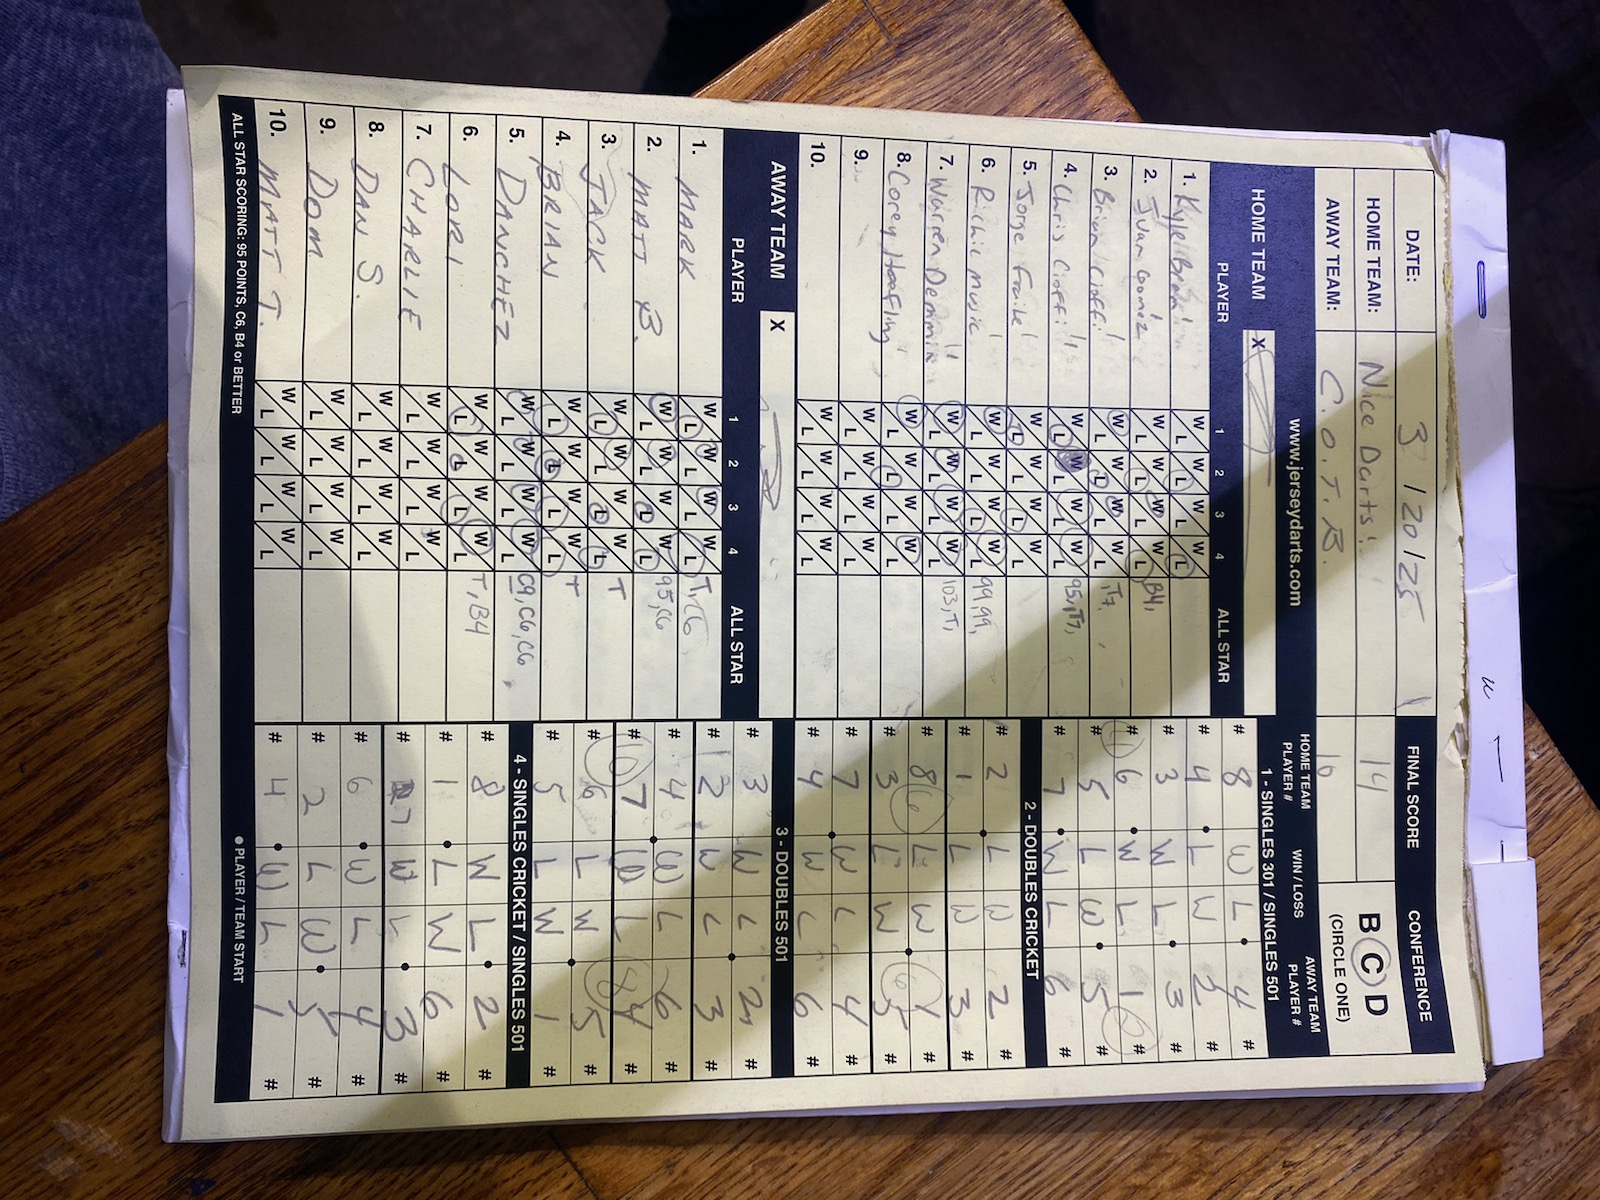 DATE: 3/20/25 FINAL SCORE CONFERENCE
HOME TEAM: Nice Darts! 14 B C D
AWAY TEAM: C.O.T.B. 16 (CIRCLE ONE)
www.jerseydarts.com
HOME TEAM X
PLAYER 1 2 3 4 ALL STAR
1. Kyle W L W L W L W L
2. Juan Gomez W L W L W L W L B4,
3. Brian Cioffi W L W L W L W L T7,
4. Chris Cioffi W L W L W L W L 95, T7,
5. Jorge Fraile W L W L W L W L
6. Richie Music W L W L W L W L 99,99,
7. Warren W L W L W L W L 103,T,
8. Corey Hoefling W L W L W L W L
9. W L W L W L W L
10. W L W L W L W L
AWAY TEAM X
PLAYER 1 2 3 4 ALL STAR
1. MARK W L W L W L W L T, C6,
2. MATT B. W L W L W L W L 95,C6
3. JACK W L W L W L W L T
4. BRIAN W L W L W L W L T
5. DANCHEZ W L W L W L W L C9,C6,C6,
6. LORI W L W L W L W L T,B4
7. CHARLIE W L W L W L W L
8. DAN S. W L W L W L W L
9. DOM W L W L W L W L
10. MATT T. W L W L W L W L
ALL STAR SCORING: 95 POINTS, C6, B4 or BETTER
HOME TEAM PLAYER # WIN / LOSS AWAY TEAM PLAYER #
1 - SINGLES 301 / SINGLES 501
# 8 W L 4 #
# 4 L W 2 #
# 3 W L 3 #
# 6 W L 1 #
# 5 L W 5 #
# 7 W L 6 #
2 - DOUBLES CRICKET
# 2 L W 2 #
# 1 L W 3 #
# 8 6 L W 6 #
# 3 L W 5 #
# 7 W L 4 #
# 4 W L 6 #
3 - DOUBLES 501
# 3 W L 2 #
# 2 W L 3 #
# 4 W L 6 #
# 7 W L 4 #
# 6 L W 5 #
# 5 L W 1 #
4 - SINGLES CRICKET / SINGLES 501
# 8 W L 2 #
# 1 L W 6 #
# 7 W L 3 #
# 6 W L 4 #
# 2 L W 5 #
# 4 W L 1 #
● PLAYER / TEAM START